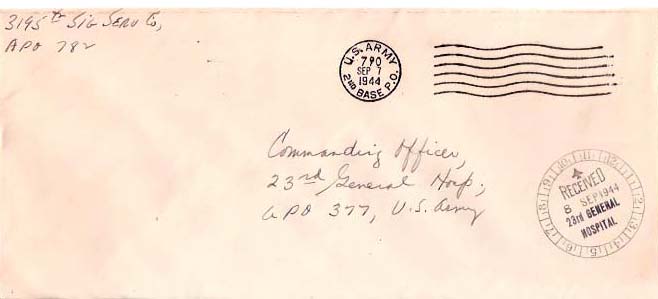 3195th Sig Serv Co,
APO 782
U.S. ARMY
790
SEP 7
1944
2ND BASE P.O.
Commanding Officer,
23rd General Hosp;
APO 377, U.S. Army
RECEIVED
8 SEP 1944
23rd GENERAL
HOSPITAL